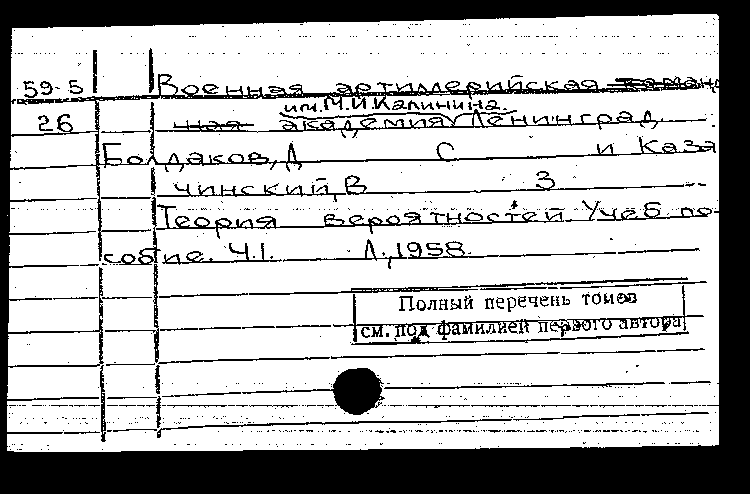 59-5 Военная артиллерийская команд
им. М.И. Калинина.
26 ная академия Ленинград
Болдаков, Д С и Каза
чинский, В З
Теория вероятностей. Учеб. по-
собие. Ч.1. Л., 1958.
Полный перечень томов
см. под фамилией первого автора